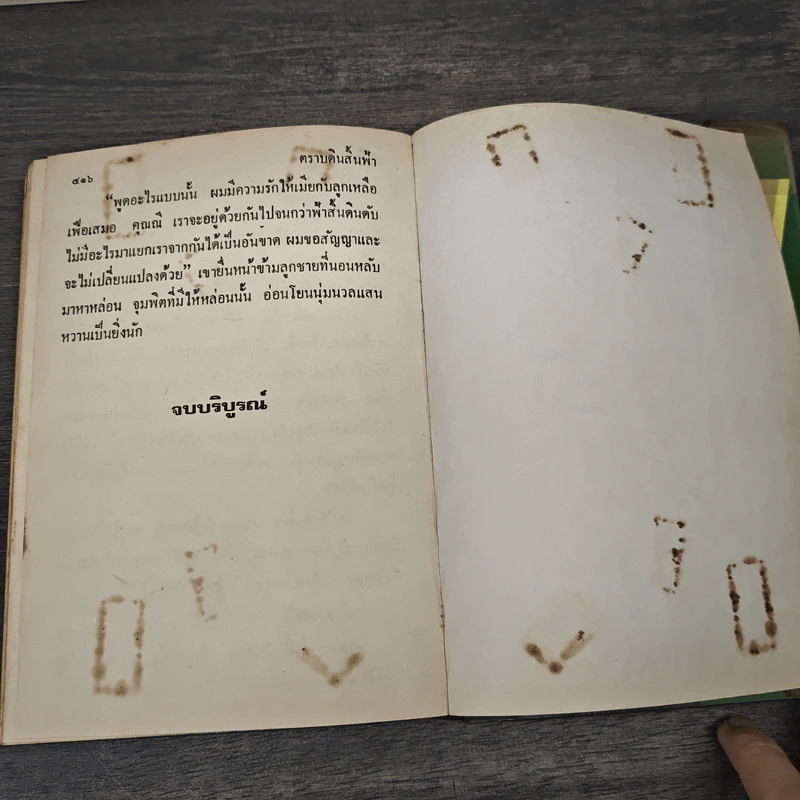 ๔๑๖
ตราบดินสิ้นฟ้า
“พูดอะไรแบบนั้น ผมมีความรักให้เมียกับลูกเหลือ
เฟือเสมอ คุณณี เราจะอยู่ด้วยกันไปจนกว่าฟ้าสิ้นดินดับ
ไม่มีอะไรมาแยกเราจากกันได้เป็นอันขาด ผมขอสัญญาและ
จะไม่เปลี่ยนแปลงด้วย” เขายื่นหน้าข้ามลูกชายที่นอนหลับ
มาหาหล่อน จุมพิตที่มีให้หล่อนนั้น อ่อนโยนนุ่มนวลแสน
หวานเป็นยิ่งนัก
จบบริบูรณ์